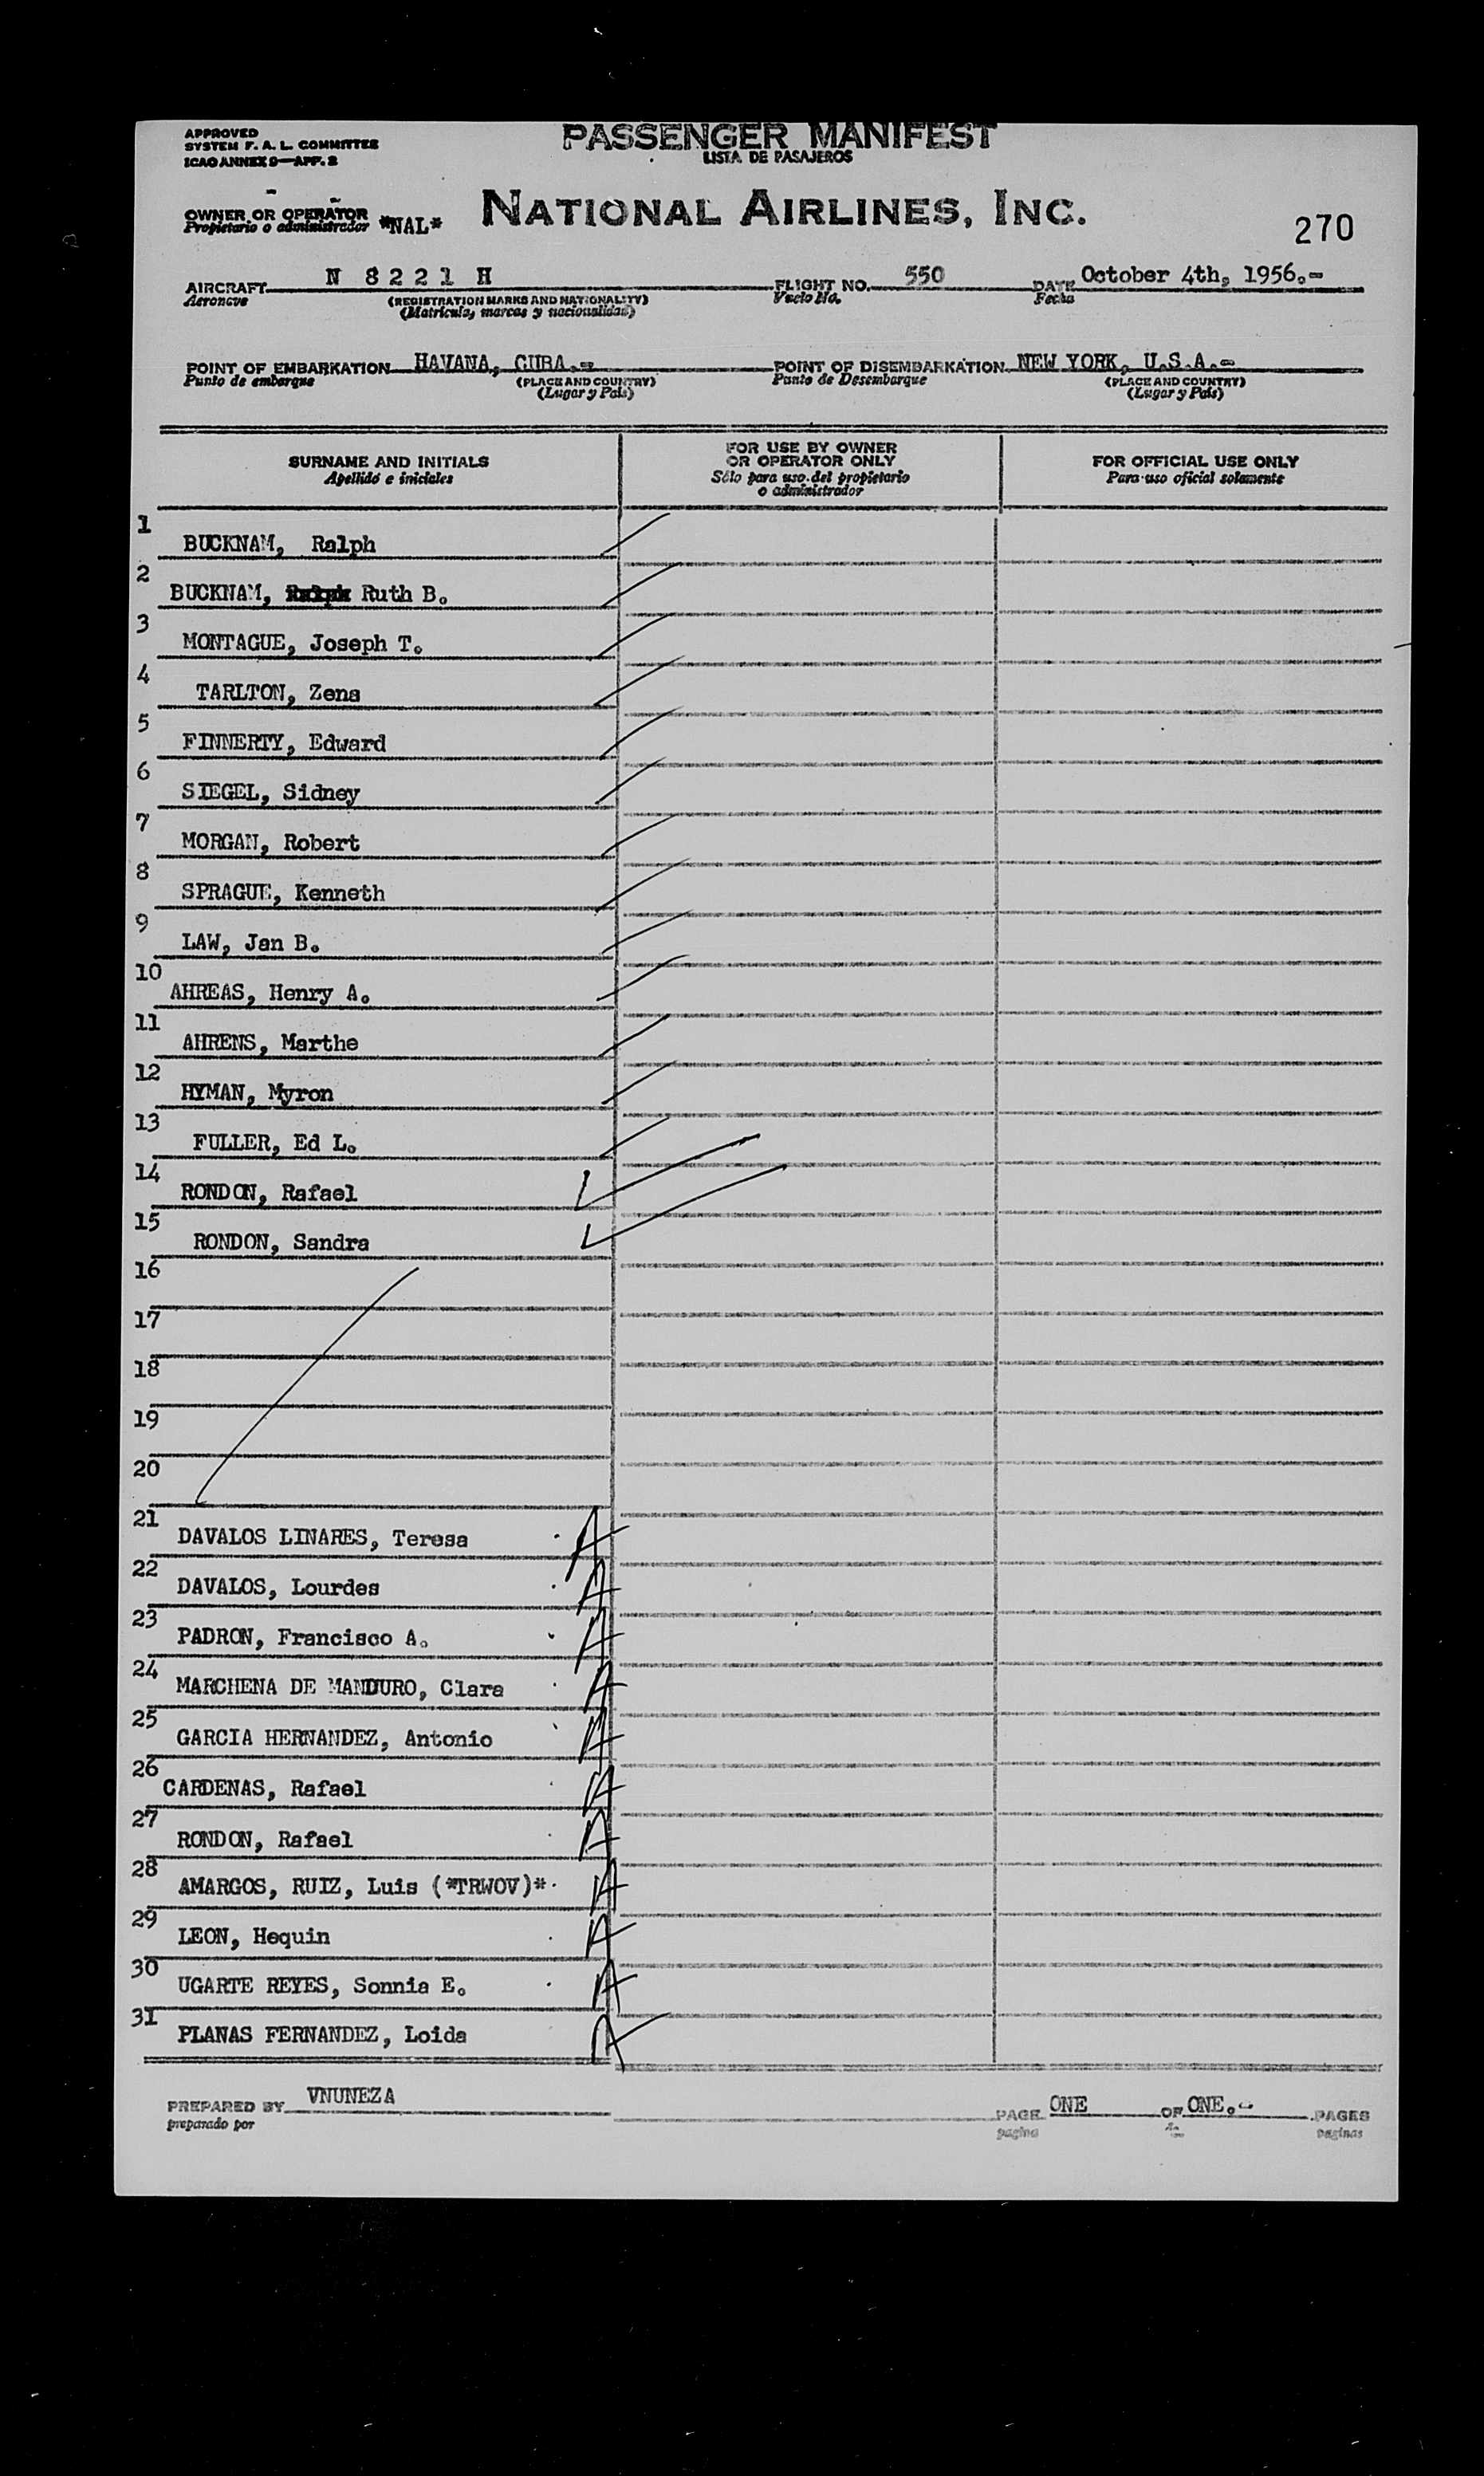 APPROVED
SYSTEM F. A. L. COMMITTEE
ICAO ANNEX 9—APP. 2
PASSENGER MANIFEST
LISTA DE PASAJEROS
OWNER OR OPERATOR *NAL*
Propietario o administrador
NATIONAL AIRLINES, INC.
270
AIRCRAFT N 8 2 2 1 H FLIGHT NO. 550 DATE October 4th, 1956.-
Aeronave (REGISTRATION MARKS AND NATIONALITY) Vuelo No. Fecha
(Matricula, marcas y nacionalidad)
POINT OF EMBARKATION HAVANA, CUBA.- POINT OF DISEMBARKATION NEW YORK, U.S.A.-
Punto de embarque (PLACE AND COUNTRY) Punto de Desembarque (PLACE AND COUNTRY)
(Lugar y País) (Lugar y País)
SURNAME AND INITIALS
Apellido e iniciales
FOR USE BY OWNER
OR OPERATOR ONLY
Sólo para uso del propietario
o administrador
FOR OFFICIAL USE ONLY
Para uso oficial solamente
1 BUCKNAM, Ralph
2 BUCKNAM, Ruth B.
3 MONTAGUE, Joseph T.
4 TARLTON, Zena
5 FINNERTY, Edward
6 SIEGEL, Sidney
7 MORGAN, Robert
8 SPRAGUE, Kenneth
9 LAW, Jan B.
10 AHREAS, Henry A.
11 AHRENS, Marthe
12 HYMAN, Myron
13 FULLER, Ed L.
14 RONDON, Rafael
15 RONDON, Sandra
16
17
18
19
20
21 DAVALOS LINARES, Teresa
22 DAVALOS, Lourdes
23 PADRON, Francisco A.
24 MARCHENA DE MANDURO, Clara
25 GARCIA HERNANDEZ, Antonio
26 CARDENAS, Rafael
27 RONDON, Rafael
28 AMARGOS, RUIZ, Luis (*TRWOV)*
29 LEON, Hequin
30 UGARTE REYES, Sonnia E.
31 PLANAS FERNANDEZ, Loida
PREPARED BY VNUNEZA PAGE ONE OF ONE.- PAGES
preparado por pagina de paginas